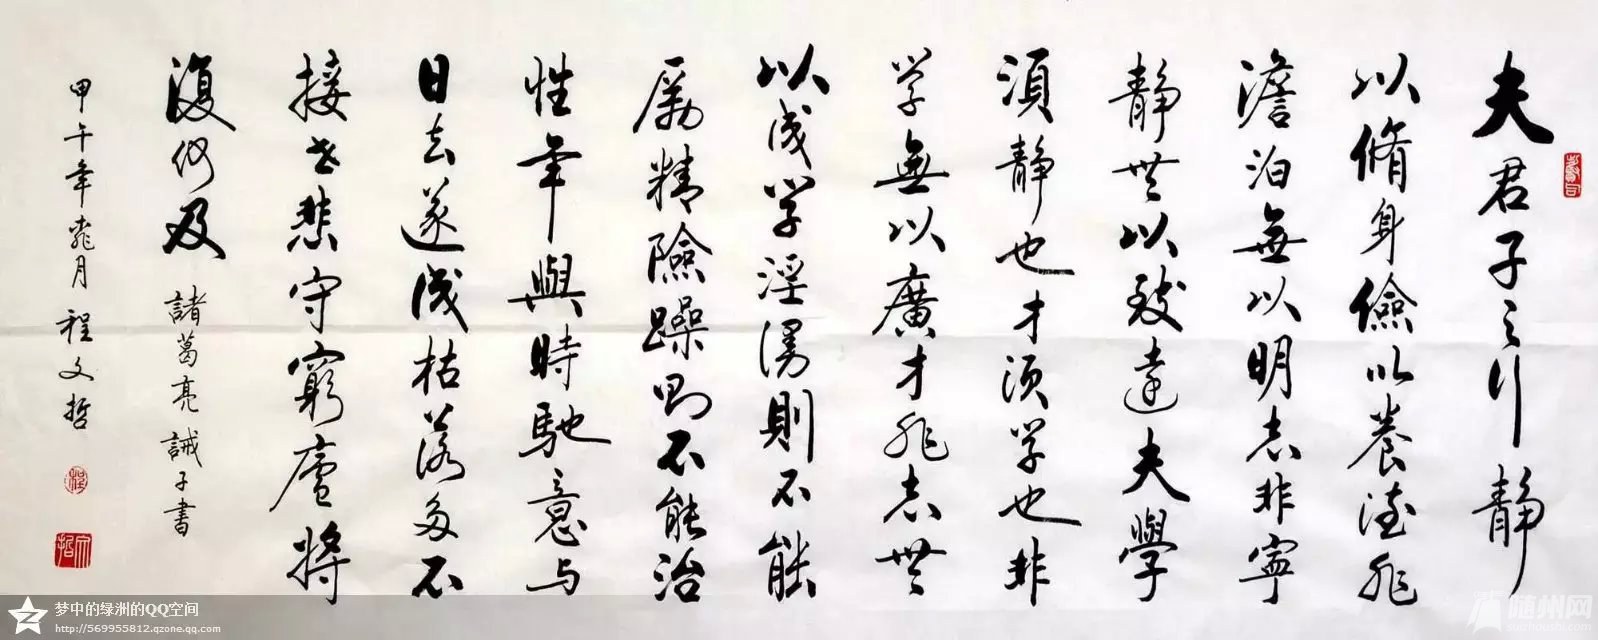 夫君子之行靜
以脩身儉以養德非
澹泊無以明志非寧
靜無以致遠夫學
須静也才須学也非
学無以廣才非志無
以成学淫漫則不能
励精險躁則不能治
性年與時馳意与
日去遂成枯落多不
接世悲守窮廬將
復何及 諸葛亮誡子書
甲午年月 程文哲
梦中的绿洲的QQ空间
http://569955812.qzone.qq.com
随州网
suizhoushi.com